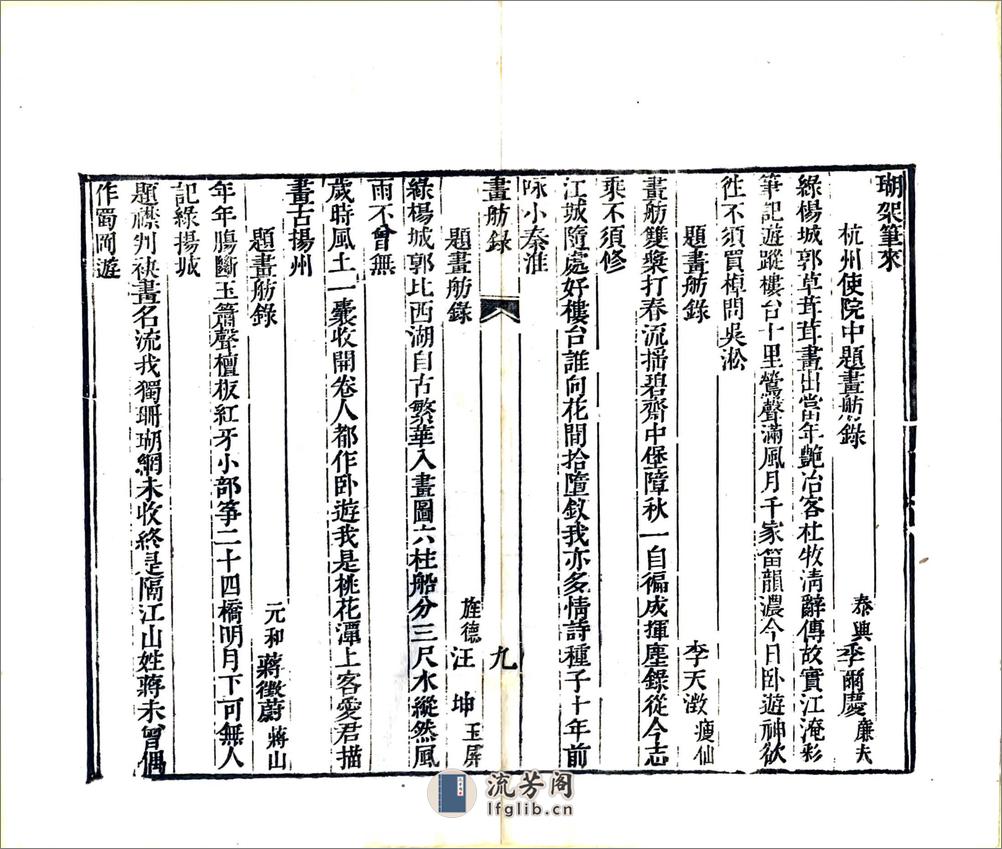 瑚架筆來
杭州使院中題畫舫錄 泰興季爾慶廉夫
綠楊城郭草茸茸畫出當年艷冶客杜牧淸辭傳故實江淹彩
筆記遊蹤樓台十里鶯聲滿風月千家笛韻濃今日卧遊神欲
徃不須買棹問吳淞
題畫舫錄 李天澂瘦仙
畫舫雙槳打春流揺碧齋中堡障秋一自徧成揮塵錄從今志
乘不須修
江城隨處好樓台誰向花間拾墮釵我亦多情詩種子十年前
咏小秦淮
畫舫錄 九
題畫舫錄 旌德汪坤玉屏
綠楊城郭比西湖自古繁華入畫圖六柱船分三尺水縱然風
雨不曾無
歲時風土一嚢收開卷人都作卧遊我是桃花潭上客愛君描
畫古揚州
題畫舫錄 元和蔣徵蔚蔣山
年年膓斷玉簫聲檀板紅牙小部箏二十四橋明月下可無人
記綠揚城
題襟判袂盡名流我獨珊瑚網未收終是隔江山姓蔣未曾偶
作蜀岡遊
流芳阁
lfglib.cn